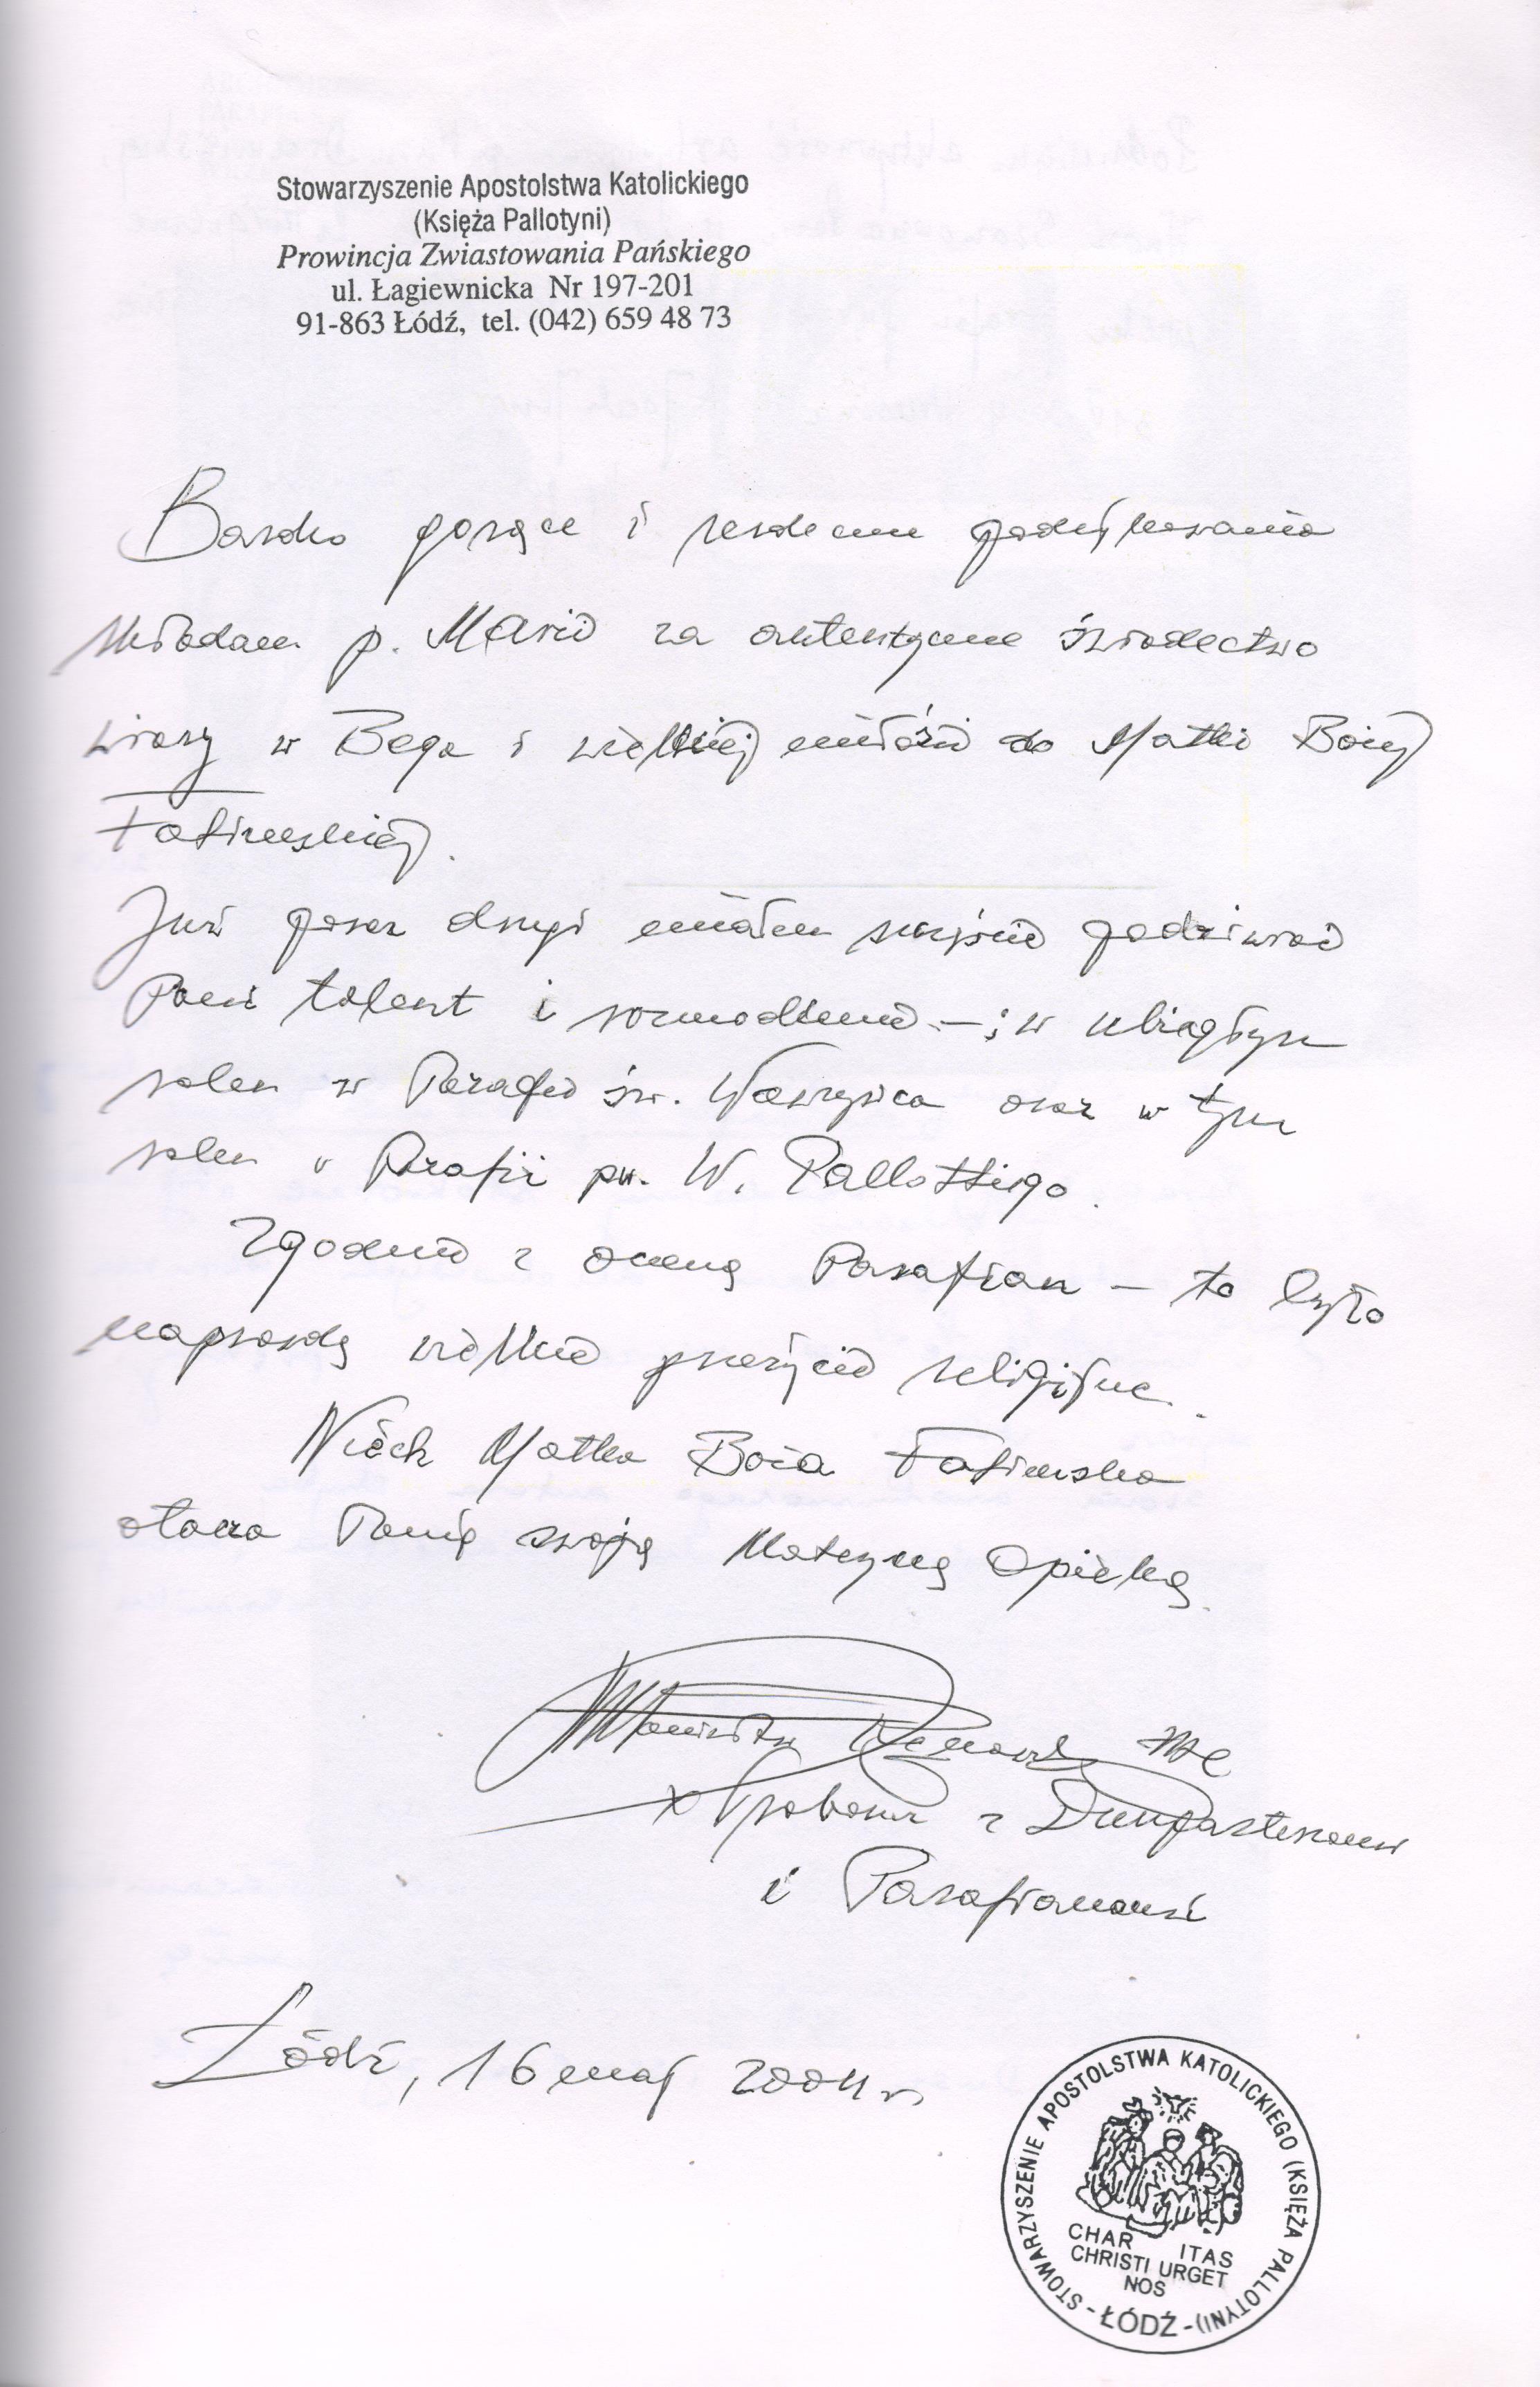 Stowarzyszenie Apostolstwa Katolickiego
(Księża Pallotyni)
Prowincja Zwiastowania Pańskiego
ul. Łagiewnicka Nr 197-201
91-863 Łódź, tel. (042) 659 48 73
Bardzo gorące i serdeczne podziękowania
składam p. Marii za autentyczne świadectwo
wiary w Boga i wielkiej miłości do Matki Bożej
Fatimskiej.
Już poraz drugi miałem szczęście podziwiać
Pani talent i rozmodlenie - ; w ubiegłym
roku w Parafii św. Wawrzyńca oraz w tym
roku w Parafii pw. W. Pallottiego.
Zgodnie z oceną Parafian - to było
naprawdę wielkie przeżycie religijne.
Niech Matka Boża Fatimska
otacza Panią swoją Matczyną Opieką.
x Proboszcz z Duszpasterzami
i Parafianami
Łódź, 16 maj 2004 r.
STOWARZYSZENIE APOSTOLSTWA KATOLICKIEGO (KSIĘŻA PALLOTYNI)
CHAR ITAS
CHRISTI URGET
NOS
- ŁÓDŹ -